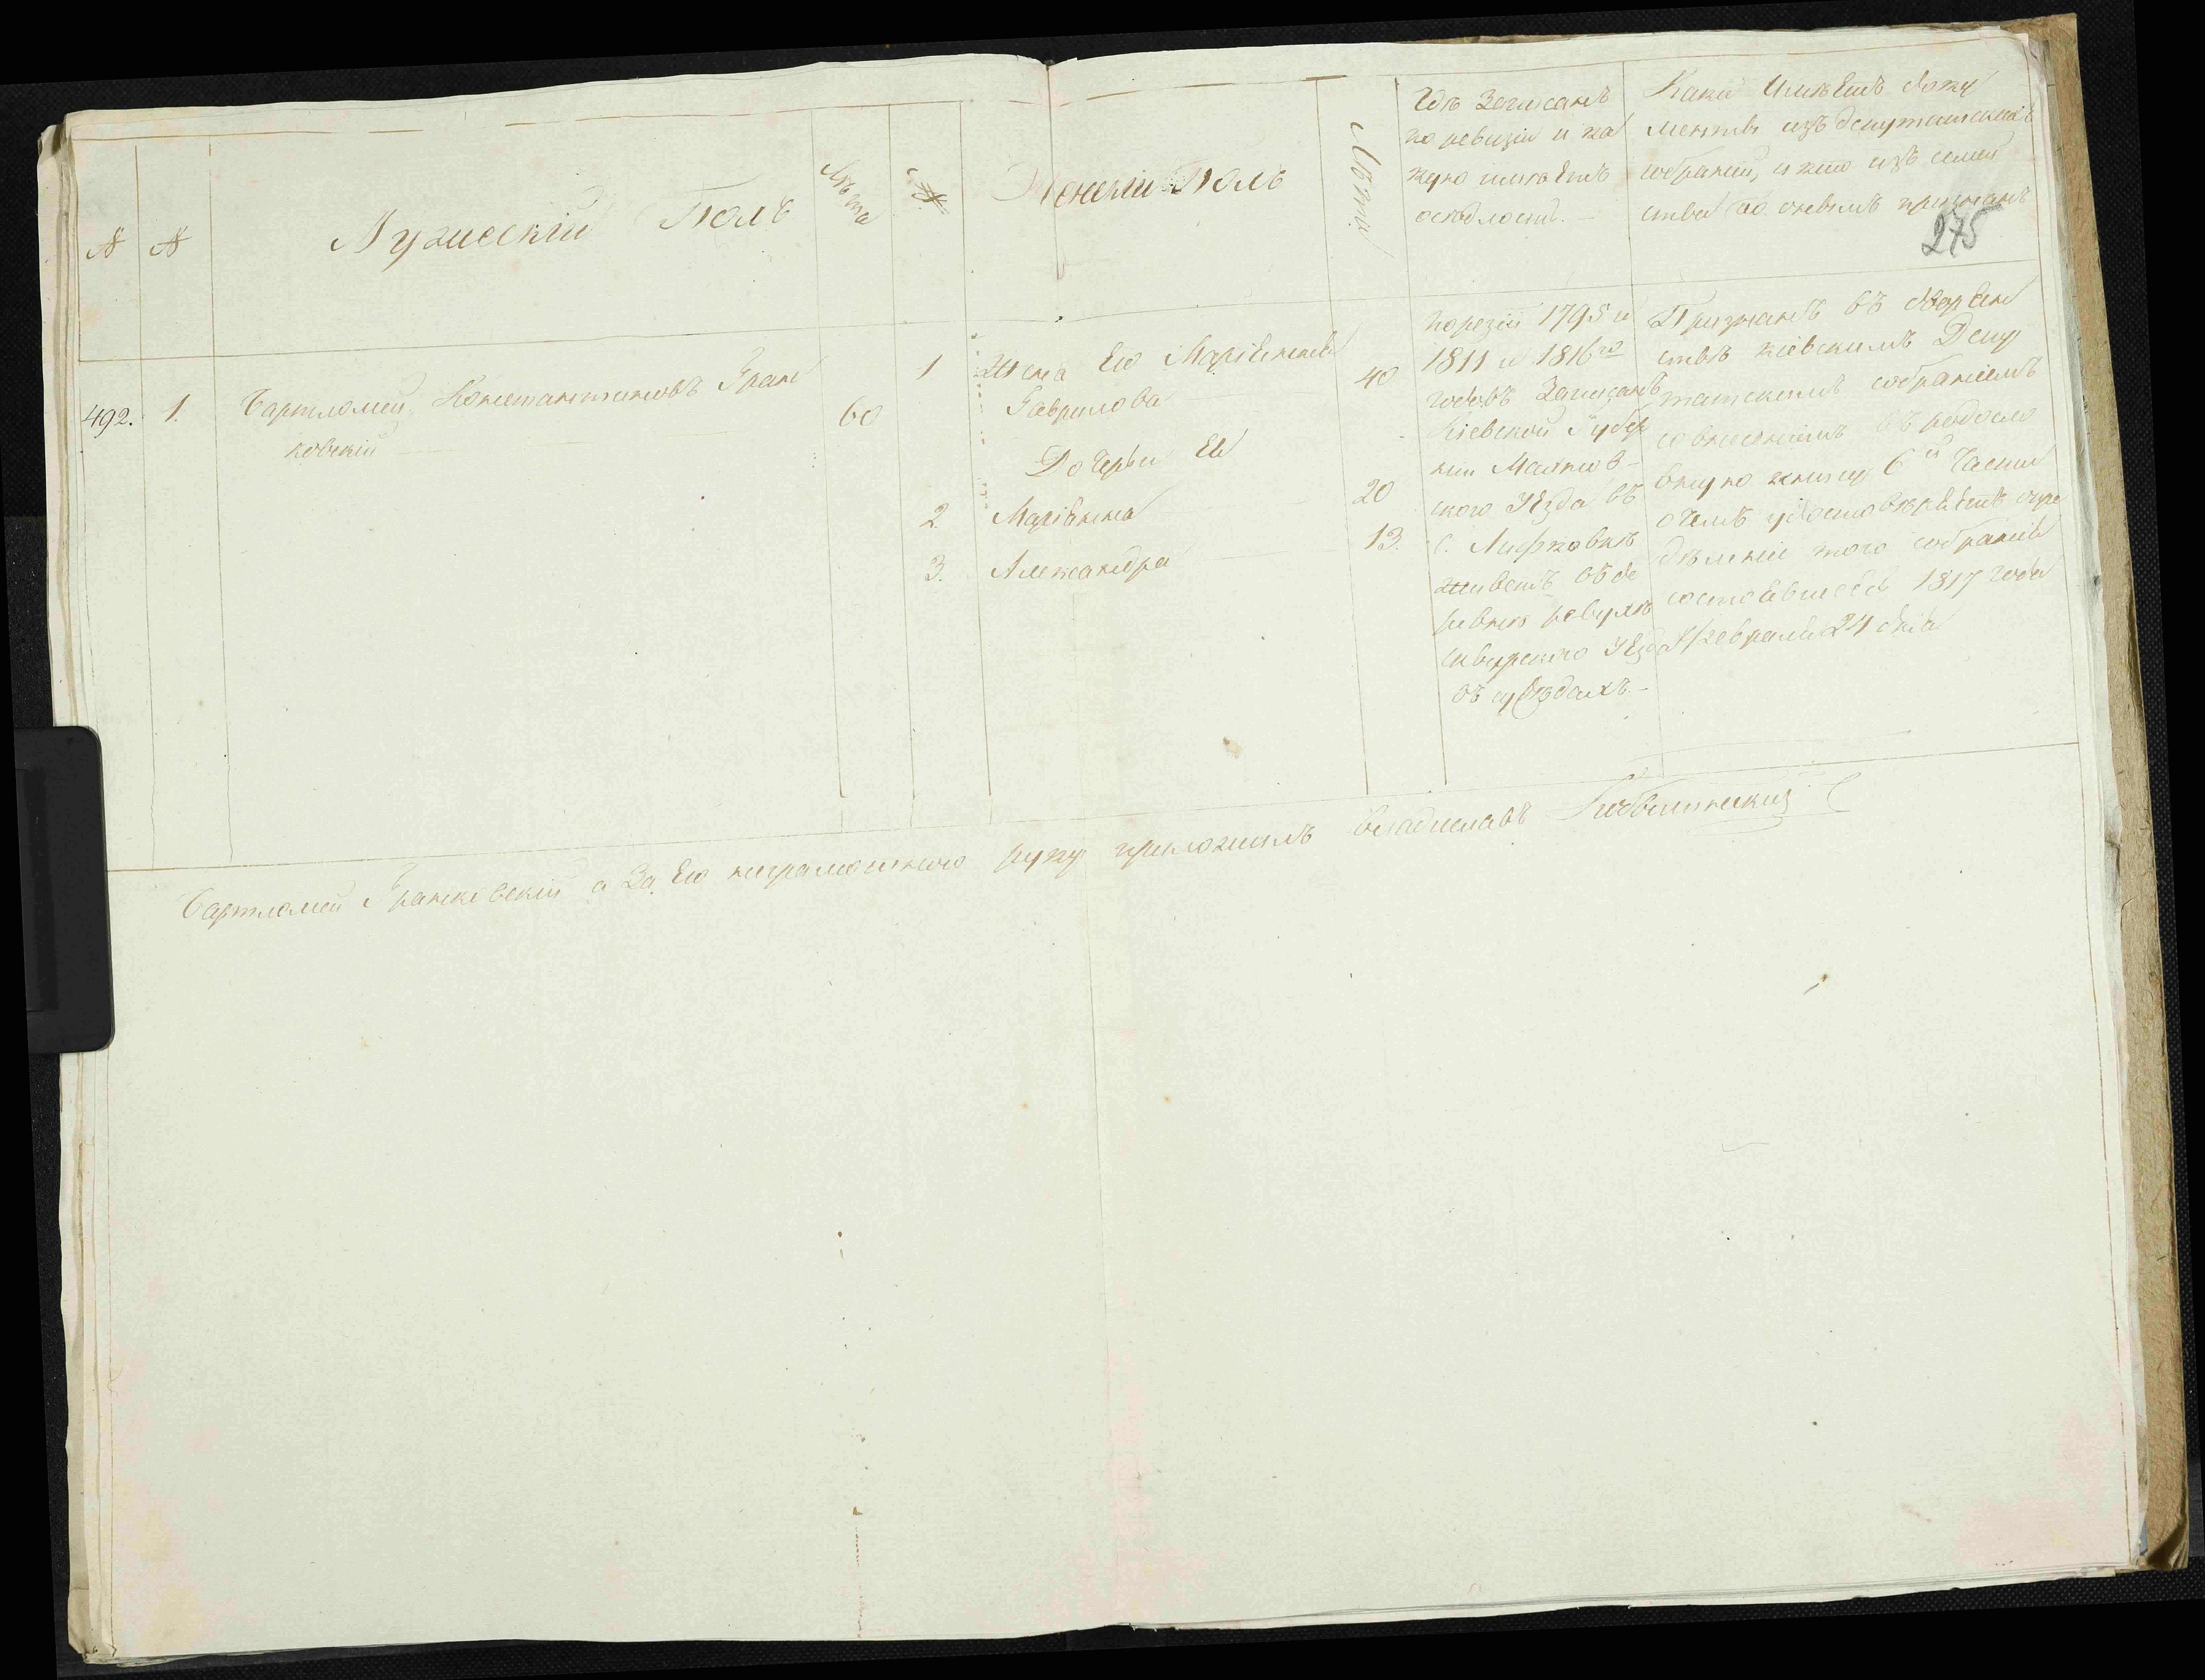 275
№
№
Мужеский Полъ
Лѣта
№
Женский Полъ
Лѣта
Где Записанъ
по ревизіи и ка
кую имѣетъ
оседлость. —
Какія Имѣетъ доку
менты изъ депутатскихъ
собраній, и кто изъ семей
ства по онымъ признанъ
492. 1. Бартломей Константиновъ Гран
ковскій
60
1 Жена Его Маріянна
Гаврилова
40
Дочери Ея
2 Маріянна
20
3. Александра
13.
1795 и
1811 и 1816го
годовъ Записанъ
Кіевской Губер
ніи Махнов-
ского Уезда въ
с.
живетъ въ де
ревне
сквирского Уезда
въ
Признанъ въ дворян
стве кіевскимъ Депу
татскимъ собраніемъ
со внесеніемъ въ родосло
вную книгу 6й части
о чемъ удостоверяетъ опре
деленіе того собранія
состоявшееся 1817 года
февраля 24 дня
Бартломей Гранковскій а За Его неграмотного руку приложилъ Владиславъ